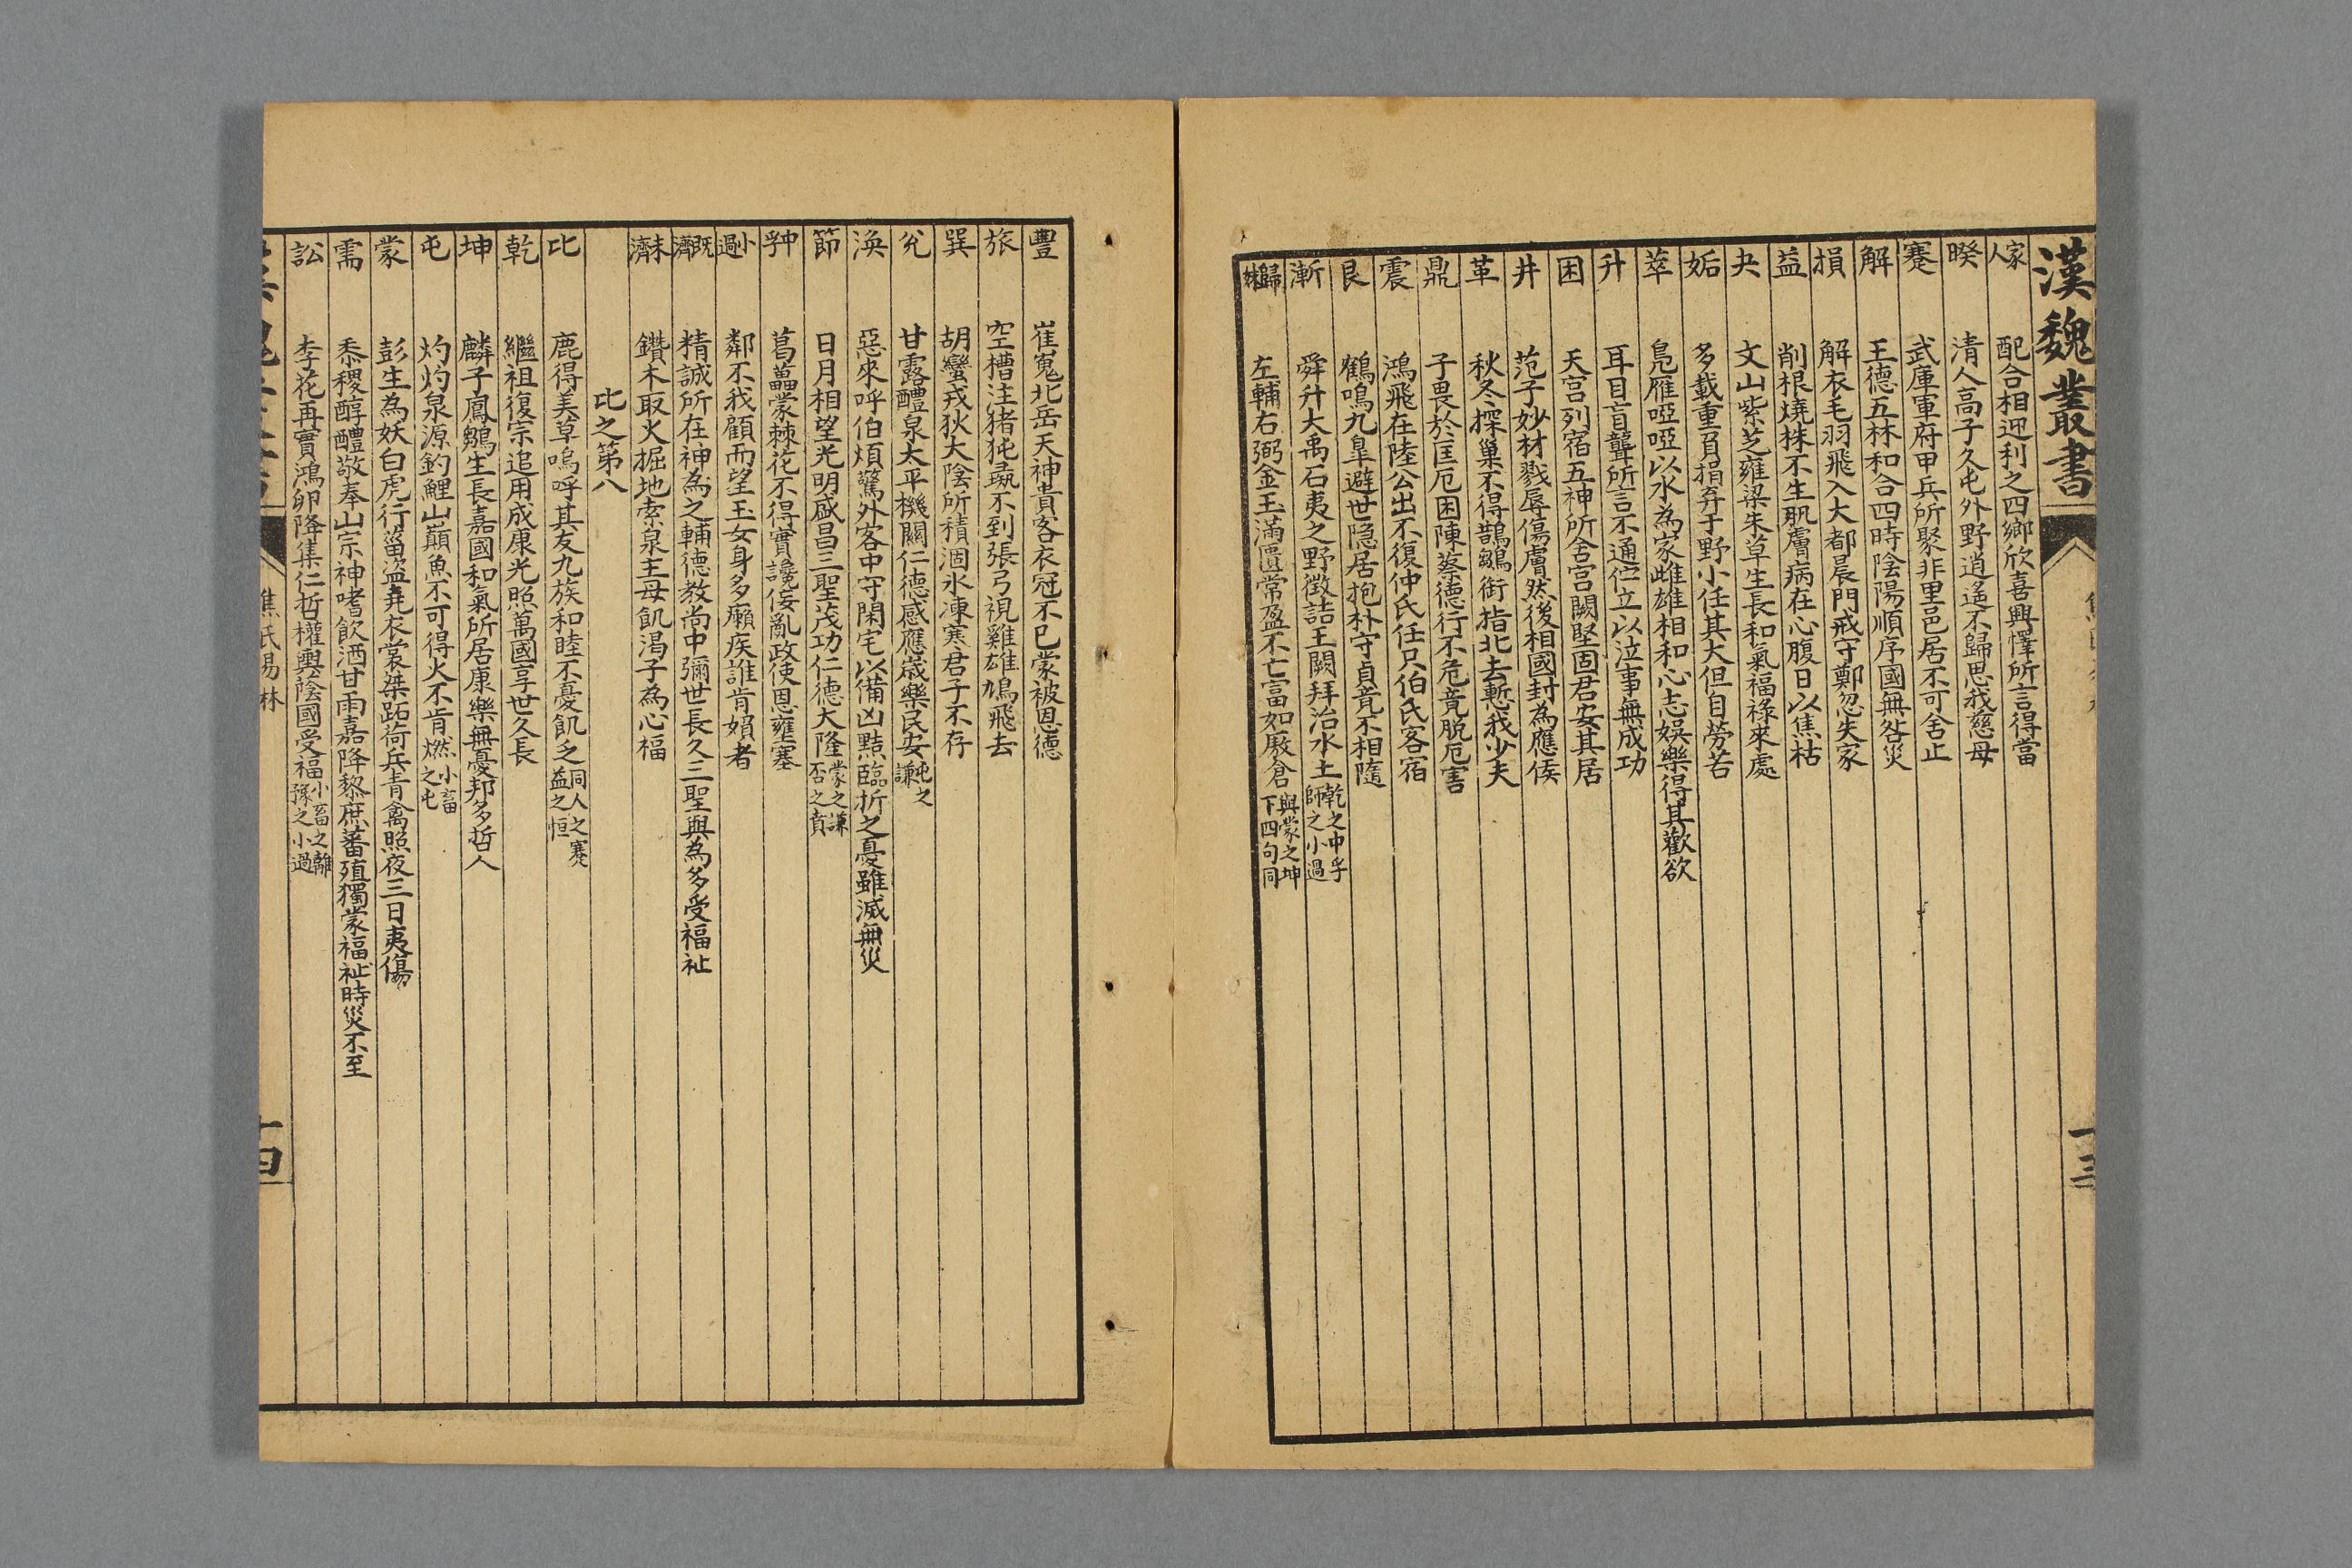 漢魏叢書
十三
家人 配合相迎利之四鄉欣喜興懌所言得當
睽 清人高子久屯外野逍遙不歸思我慈母
蹇 武庫軍府甲兵所聚非里邑居不可舍止
解 王德五林和合四時陰陽順序國無咎災
損 解衣毛羽飛入大都晨門戒守鄭忽失家
益 削根燒株不生肌膚病在心腹日以焦枯
夬 文山紫芝雍梁朱草生長和氣福祿來處
姤 多載重負捐弃于野小任其大但自勞苦
萃 鳧雁啞啞以水為家雌雄相和心志娛樂得其歡欲
升 耳目盲聾所言不通佇立以泣事無成功
困 天宮列宿五神所舍宮闕堅固君安其居
井 范子妙材戮辱傷膚然後相國封為應侯
革 秋冬探巢不得鵲鶵銜指北去慙我少夫
鼎 子畏於匡厄困陳蔡德行不危竟脫厄害
震 鴻飛在陸公出不復仲氏任只伯氏客宿
艮 鶴鳴九皐避世隱居抱朴守貞竟不相隨
漸 舜升大禹石夷之野徵詣王闕拜治水土 乾之中孚師之小過
歸妹 左輔右弼金玉滿匱常盈不亡富如廒倉 與蒙之坤下四句同
豐 崔嵬北岳天神貴客衣冠不已蒙被恩德
旅 空槽注猪㹠彘不到張弓視雞雄鳩飛去
巽 胡蠻戎狄大陰所積涸冰凍寒君子不存
兌 甘露醴泉太平機關仁德感應歲樂民安 屯之謙
渙 惡來呼伯煩驚外客中守閑宅以備凶黠臨折之憂雖滅無災
節 日月相望光明盛昌三聖茂功仁德大隆 蒙之謙否之賁
中孚 葛藟蒙棘花不得實讒佞亂政使恩壅塞
小過 鄰不我顧而望玉女身多癩疾誰肯媚者
既濟 精誠所在神為之輔德教尚中彌世長久三聖與為多受福祉
未濟 鑽木取火掘地索泉主母飢渴子為心福
比之第八
比 鹿得美草嗚呼其友九族和睦不憂飢乏 同人之蹇益之恒
乾 繼祖復宗追用成康光照萬國享世久長
坤 麟子鳳鶵生長嘉國和氣所居康樂無憂邦多哲人
屯 灼灼泉源釣鯉山巔魚不可得火不肯燃 小畜之屯
蒙 彭生為妖白虎行菑盜堯衣裳桀跖荷兵青禽照夜三日夷傷
需 黍稷醇醴敬奉山宗神嗜飲酒甘雨嘉降黎庶蕃殖獨蒙福祉時災不至
訟 李花再實鴻卵降集仁哲權輿蔭國受福 小畜之離豫之小過
焦氏易林
十四